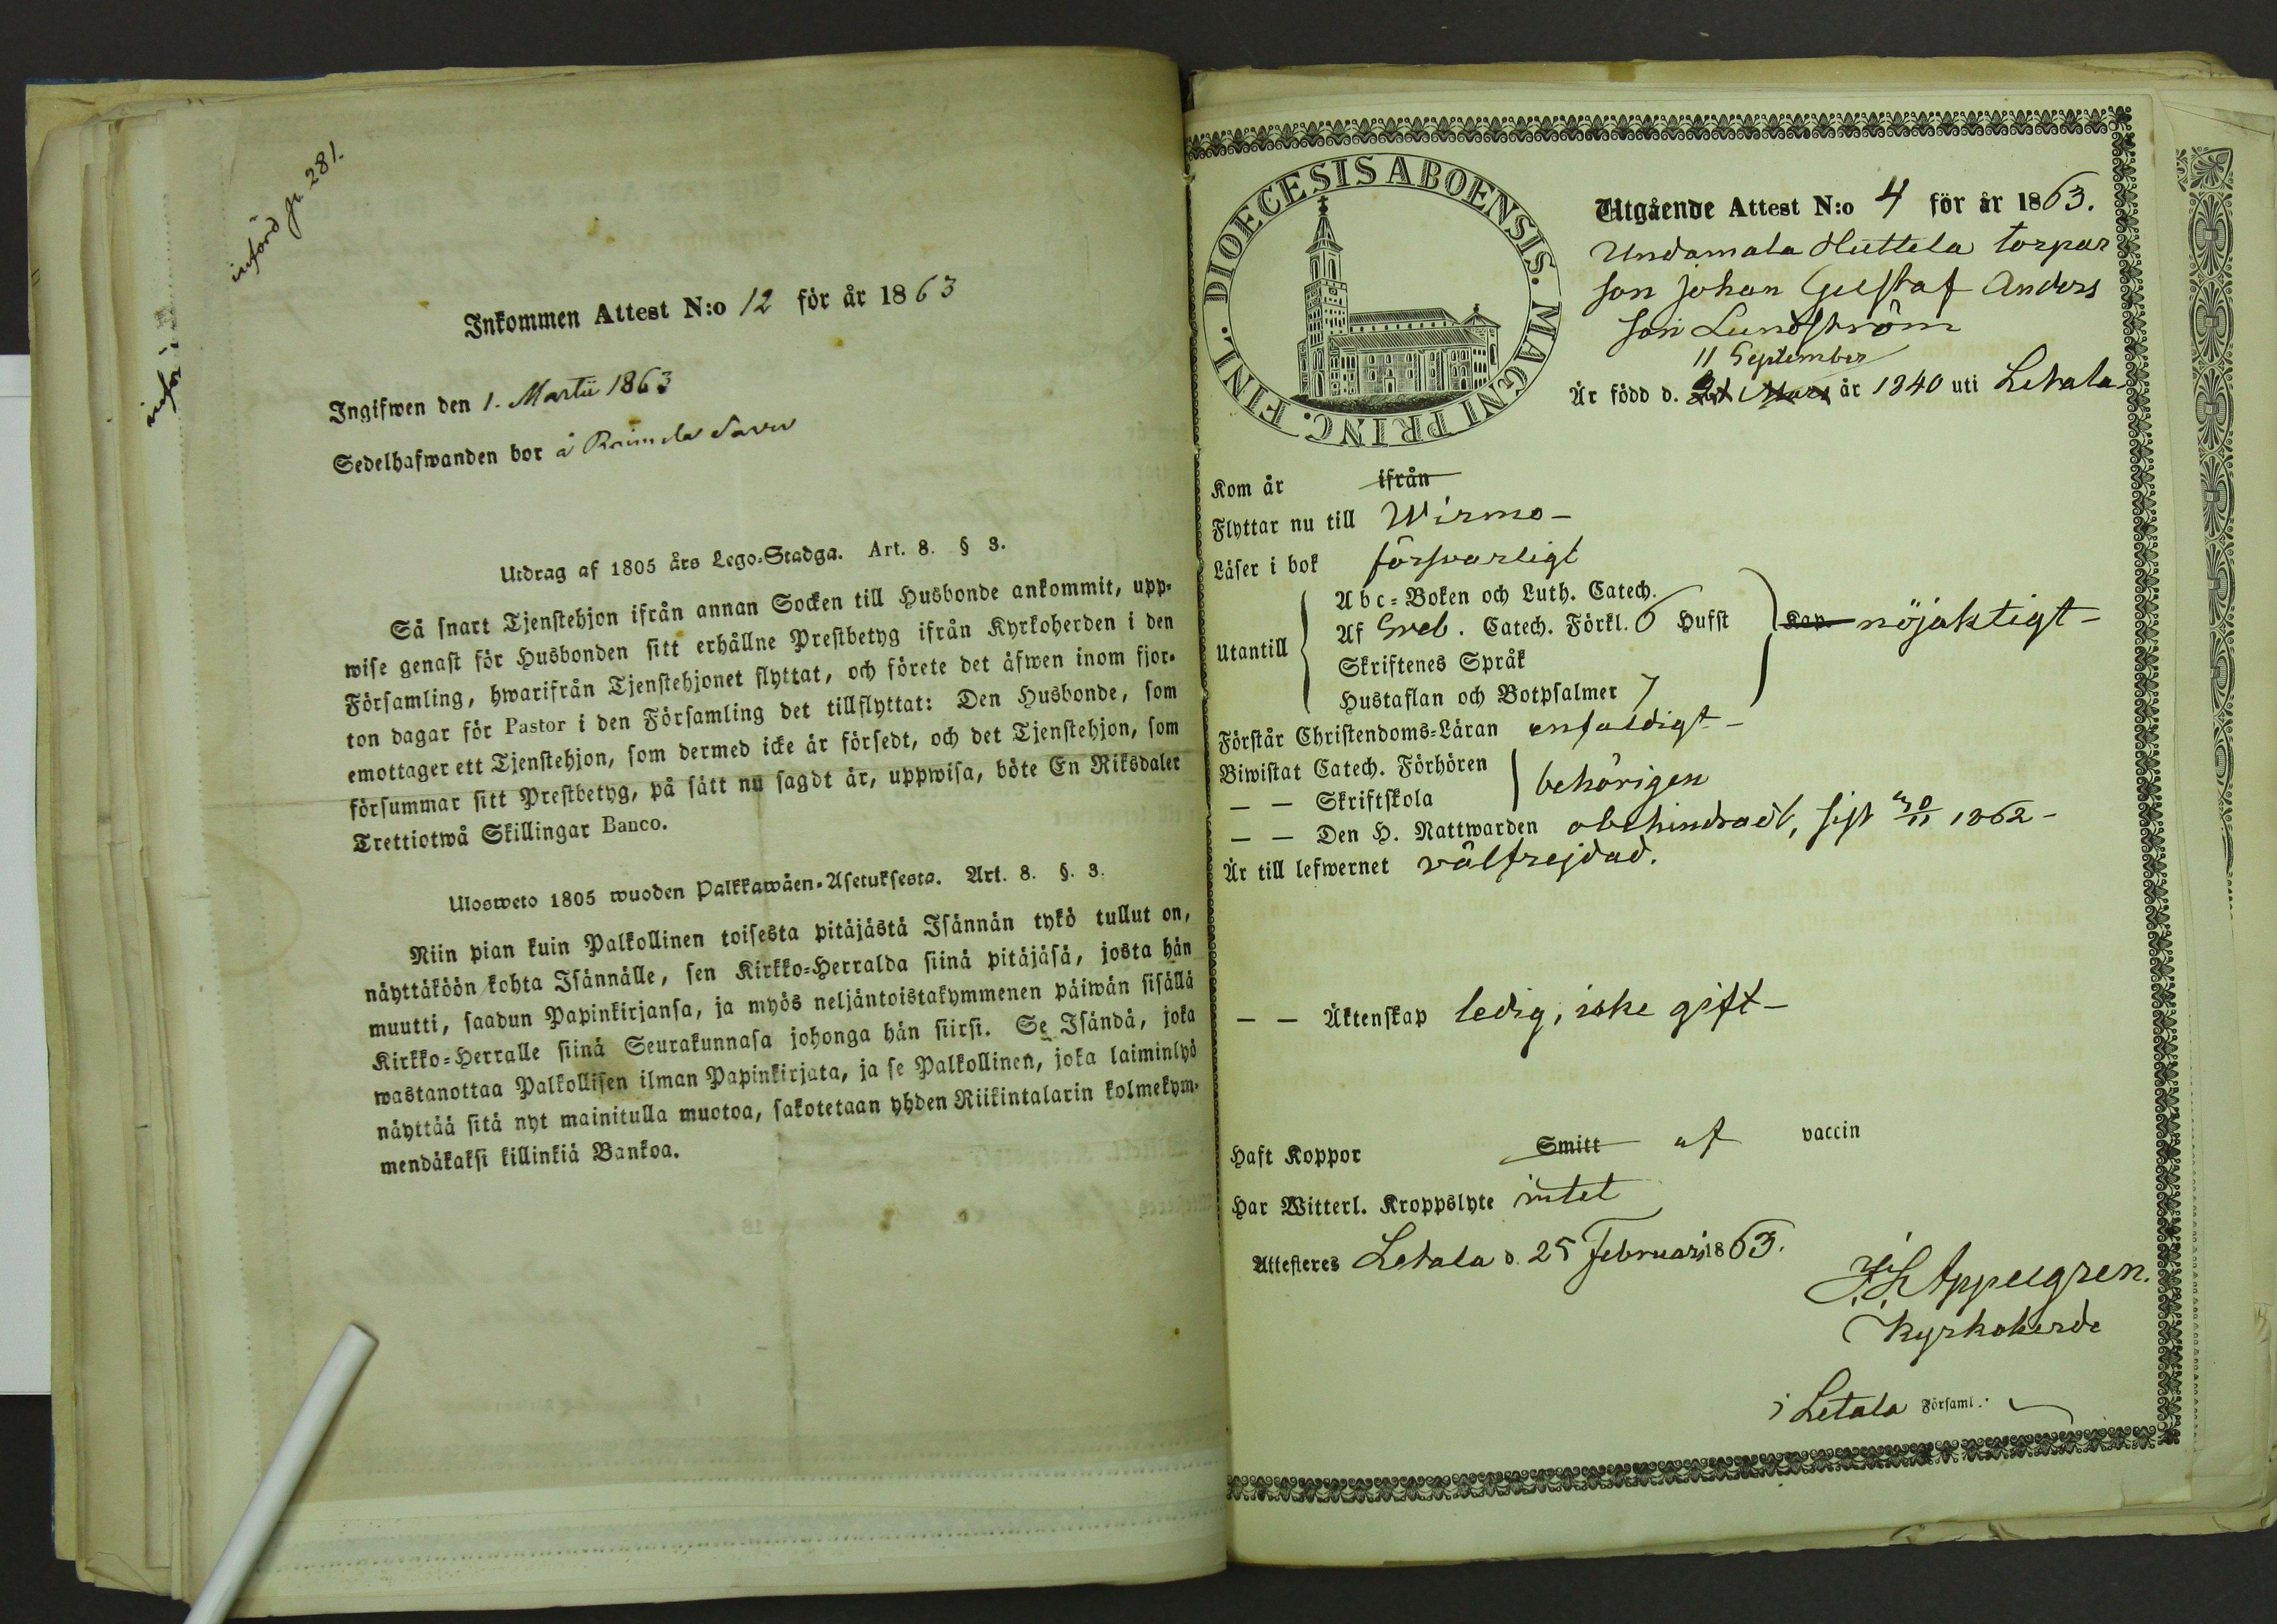 införd p. 281.
inför
Inkommen Attest N:o 12 för år 1863
Ingifwen den 1. Martii 1863
Sedelhafwanden bor å Raimela
Utdrag af 1805 års Lego-Stadga. Art. 8. § 3.
Så snart Tjenstehjon ifrån annan Socken till Husbonde ankommit, upp-
wise genast för Husbonden sitt erhållne Prestbetyg ifrån Kyrkoherden i den
Församling, hwarifrån Tjenstehjonet flyttat, och förete det äfwen inom fjor-
ton dagar för Pastor i den Församling det tillflyttat: Den Husbonde, som
emottager ett Tjenstehjon, som dermed icke är försedt, och det Tjenstehjon, som
försummar sitt Prestbetyg, på sätt nu sagdt är, uppwisa, böte En Riksdaler
Trettiotwå Skillingar Banco.
Ulosweto 1805 wuoden Palkkawäen-Asetuksesta. Art. 8. §. 3.
Niin pian kuin Palkollinen toisesta pitäjästä Isännän tykö tullut on,
näyttäköön kohta Isännälle, sen Kirkko-Herralda siinä pitäjäsä, josta hän
muutti, saadun Papinkirjansa, ja myös neljäntoistakymmenen päiwän sisällä
Kirkko-Herralle siinä Seurakunnasa johonga hän siirsi. Se Isändä, joka
wastanottaa Palkollisen ilman Papinkirjata, ja se Palkollinen, joka laiminlyö
näyttää sitä nyt mainitulla muotoa, sakotetaan yhden Riikintalarin kolmekym-
mendäkaksi killinkiä Bankoa.
DIOECESIS ABOENSIS. MAGNI PRINC. FINL.
Utgående Attest N:o 4 för år 1863.
Undamala Huttela torpar
son Johan Gustaf Anders
son Lundström
11 September
Är född d. Mars år 1840 uti Letala
Kom år ifrån
Flyttar nu till Wirmo-
Läser i bok försvarligt
Utantill
Abc-Boken och Luth. Catech.
Af Sveb. Catech. Förkl. 6 Hufst Kap. nöjaktigt-
Skriftenes Språk
Hustaflan och Botpsalmer 7
Förstår Christendoms-Läran enfaldigt-
Biwistat Catech. Förhören
behörigen
— — Skriftskola
— — Den H. Nattwarden obehindradt, sist 1862-
Är till lefwernet välfrejdad.
— — Äktenskap ledig, icke gift-
Haft Koppor Smitt af vaccin
Har Witterl. Kroppslyte intet
Attesteres Letala d. 25 Februari 1863.
Appelgren.
Kyrkoherde
i Letala Församl.